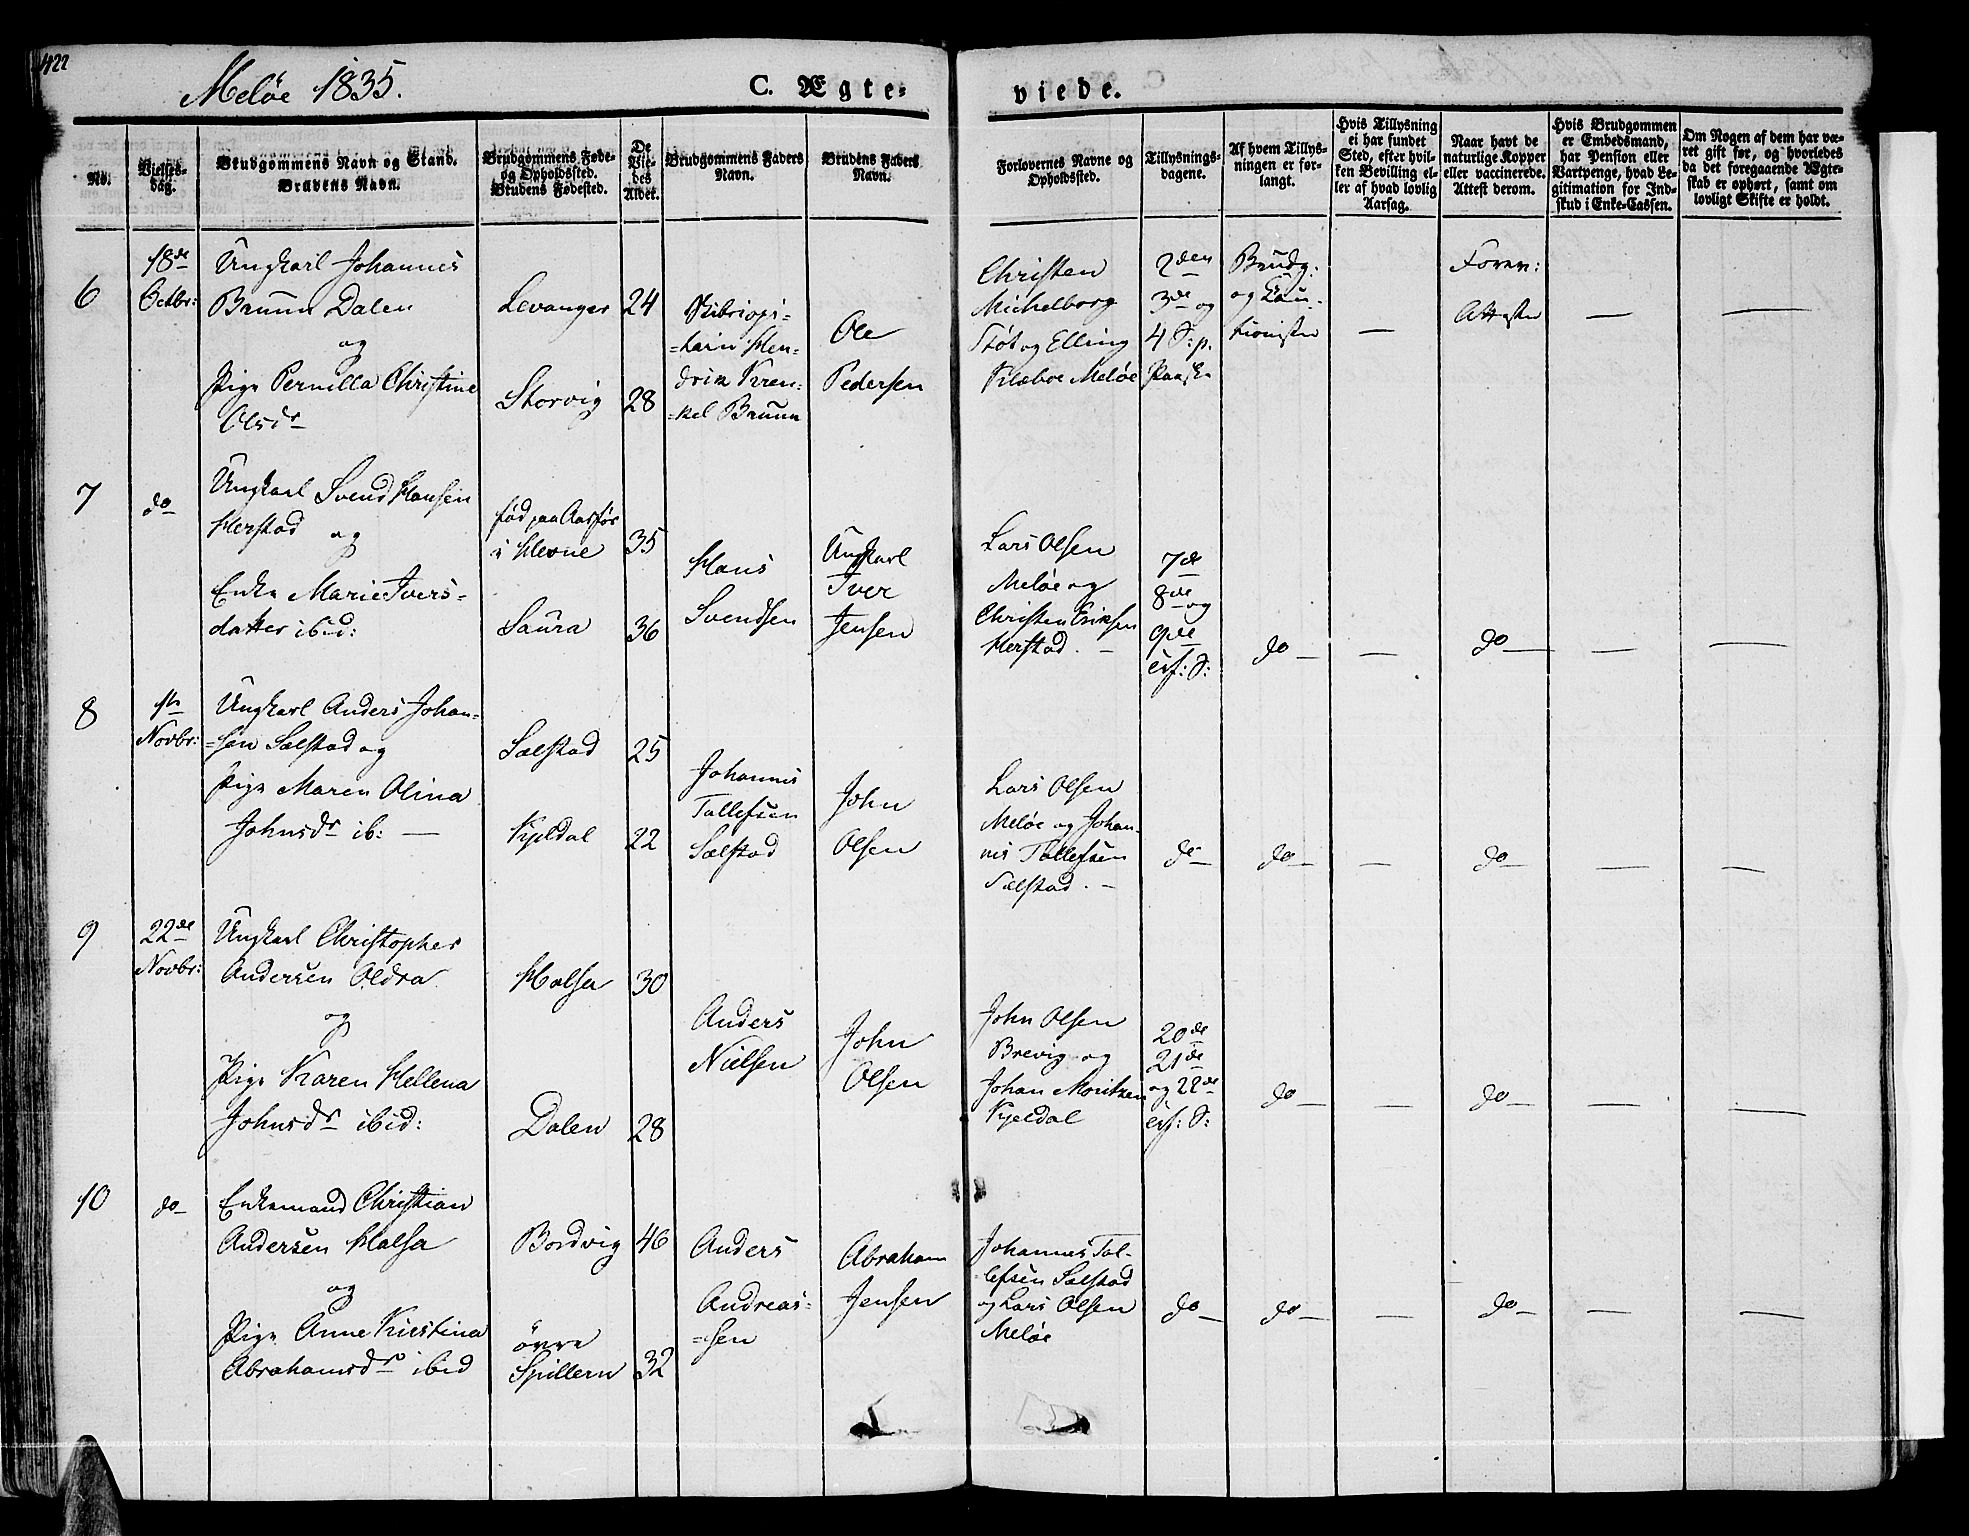 422
Meløe 1835.
C. Ægte-
viede.
No.
Vielses-
dag.
Brudgommens Navn og Stand.
Brudens Navn.
Brudgommens Føde-
og Opholdssted.
Brudens Fødested.
De
Vie-
des
Alder.
Brudgommens Faders
Navn.
Brudens Faders
Navn.
Forlovernes Navne og
Opholdssted.
Tillysnings-
dagene.
Af hvem Tillys-
ningen er for-
langt.
Hvis Tillysning
ei har fundet
Sted, efter hvil-
ken Bevilling el-
ler af hvad lovlig
Aarsag.
Naar havt de
naturlige Kopper
eller vaccinerede.
Attest derom.
Hvis Brudgommen
er Embedsmand,
har Pension eller
Vartpenge, hvad Le-
gitimation for Ind-
skud i Enke-Cassen.
Om Nogen af dem har væ-
ret gift før, og hvorledes
da det foregaaende Ægte-
skab er ophørt, samt om
lovligt Skifte er holdt.
6
18de
Octbr:
Ungkarl Johannes
Bruun Dalen
og
Pige Pernilla Christine
Olsdr
Levanger
Storvig
24
28
Hen-
drik Kren-
=kel Bruun
Ole
Pedersen
Christen
Michelborg
Støt og Elling
Klæboe Meløe
2den
3de og
4 S: p.
Paaske
Brudg:
og Cau-
tionister
Forev:
Attester
7
do
Ungkarl Svend Hansen
Herstad og
Enke Marie Ivers-
datter ibid:
fød paa
i Hevne
Saura
35
36
Hans
Svendsen
Ungkarl
Iver
Jensen
Lars Olsen
Meløe og
Christen Eriksen
Herstad. -
7de
8de og
9de
eft: S:
do
do
8
1ste
Novbr:
Ungkarl Anders Johan-
=sen Selstad og
Pige Maren Olina
Johnsdr ib:
Selstad
Kjeldal
25
22
Johannes
Tollefsen
Selstad
John
Olsen
Lars Olsen
Meløe og Johan-
nes Tollefsen
Selstad. -
do
do
do
9
22de
Novbr:
Ungkarl Christopher
Andersen Oldra
og
Pige Karen Hellena
Johnsdr ibid:
Halsa
Dalen
30
28
Anders
Nielsen
John
Olsen
John Olsen
Brevig og
Johan Moritzen
Kjeldal
20de
21de
og 22de
eft: S:
do
do
10
do
Enkemand Christian
Andersen Halsa
og
Pige Anne Kirstina
Abrahamsdr ibid
Bordvig
øvre
Spillern
46
32
Anders
Andreas-
=sen
Abraham
Jensen
Johannes Tol-
lefsen Selstad
og Lars Olsen
Meløe
do
do
do